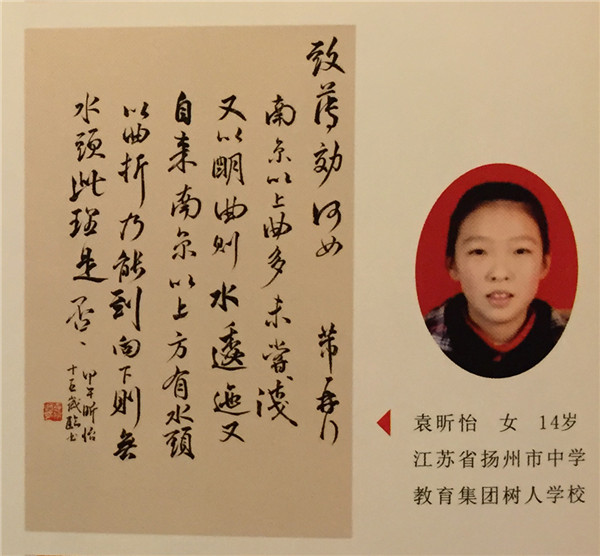 致薄効何如 芾再行
南京以上曲多未嘗淺
又以明曲則水逶迤又
自来南京以上方有水頭
以曲折乃能到向下則無
水頭此理是否
甲午昕怡
十五歲臨书
袁昕怡 女 14岁
江苏省扬州市中学
教育集团树人学校